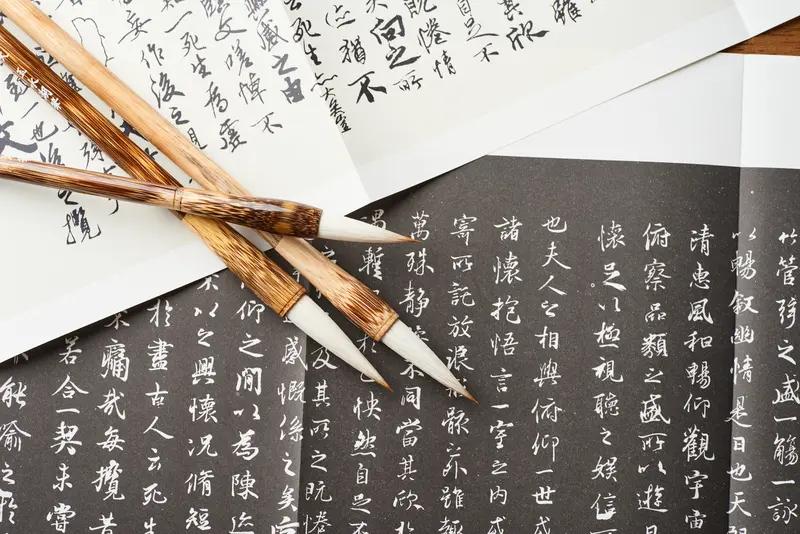 雖
其欣
自足不
既惓情
向之所
猶不
死生亦大矣豈
感之由
文嗟悼不
一死生為虛
妄作後之
攬
竹管弦之盛一觴一詠
以暢叙幽情是日也天朗
清惠風和暢仰觀宇宙
俯察品類之盛所以遊目
懷足以極視聽之娛信可
也夫人之相與俯仰一世或
諸懷抱悟言一室之內或
寄所託放浪骸之外雖趣
萬殊静不同當其欣於
遇暫於己怏然自足不
及其所之既惓
感慨係之矣
仰之閒以為陳迹
以之興懷況脩短
於盡古人云死生
不痛哉每攬昔
若合一契未嘗
能喻之於